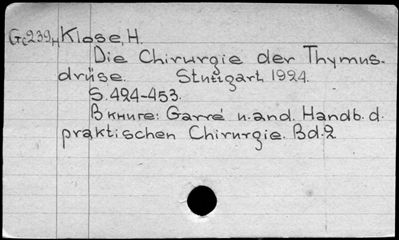 Gc239н Klose, H.
Die Chirurgie der Thymus-
drüse. Stuttgart, 1924.
S. 424-453.
В книге: Garré u. and. Handb. d.
praktischen Chirurgie. Bd. 2